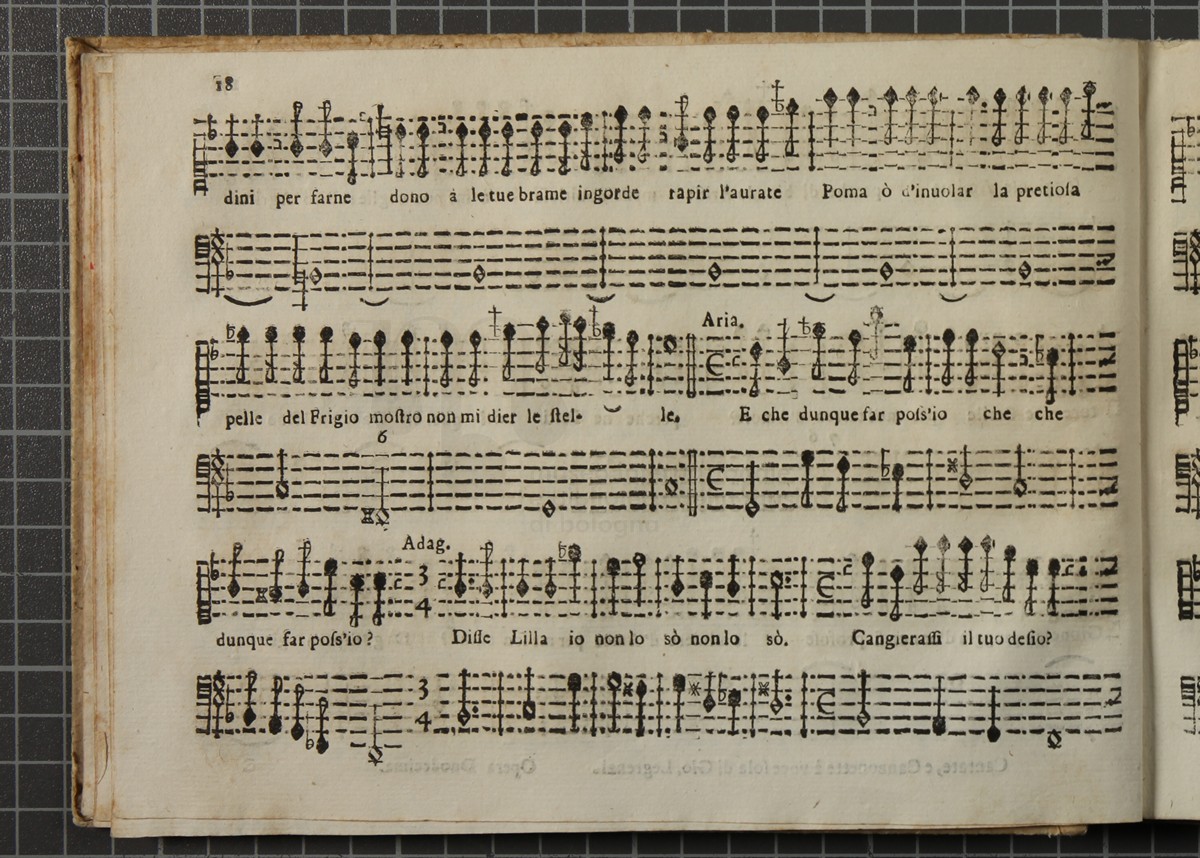 18
dini per farne dono à le tue brame ingorde rapir l'aurate Poma ò d'inuolar la pretiosa
Aria.
pelle del Frigio mostro non mi dier le stel- le. E che dunque far poss'io che che
6
Adag.
3 4
dunque far poss'io? Disse Lilla io non lo sò non lo sò. Cangierassi il tuo desio?
3 4